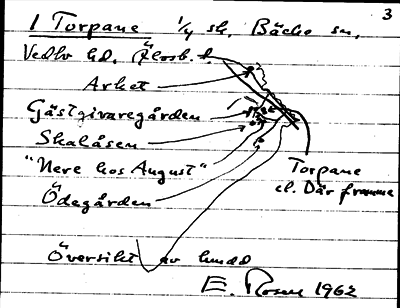 3
1 Torpane 1/4 sk. Bäcke sn,
Vedbo hd, Älvsb. l
Arket
Gästgivaregården
Skalåsen
"Nere hos August"
Ödegården
Torpane
el. Där framme
Översikt av
E. Rosen 1962